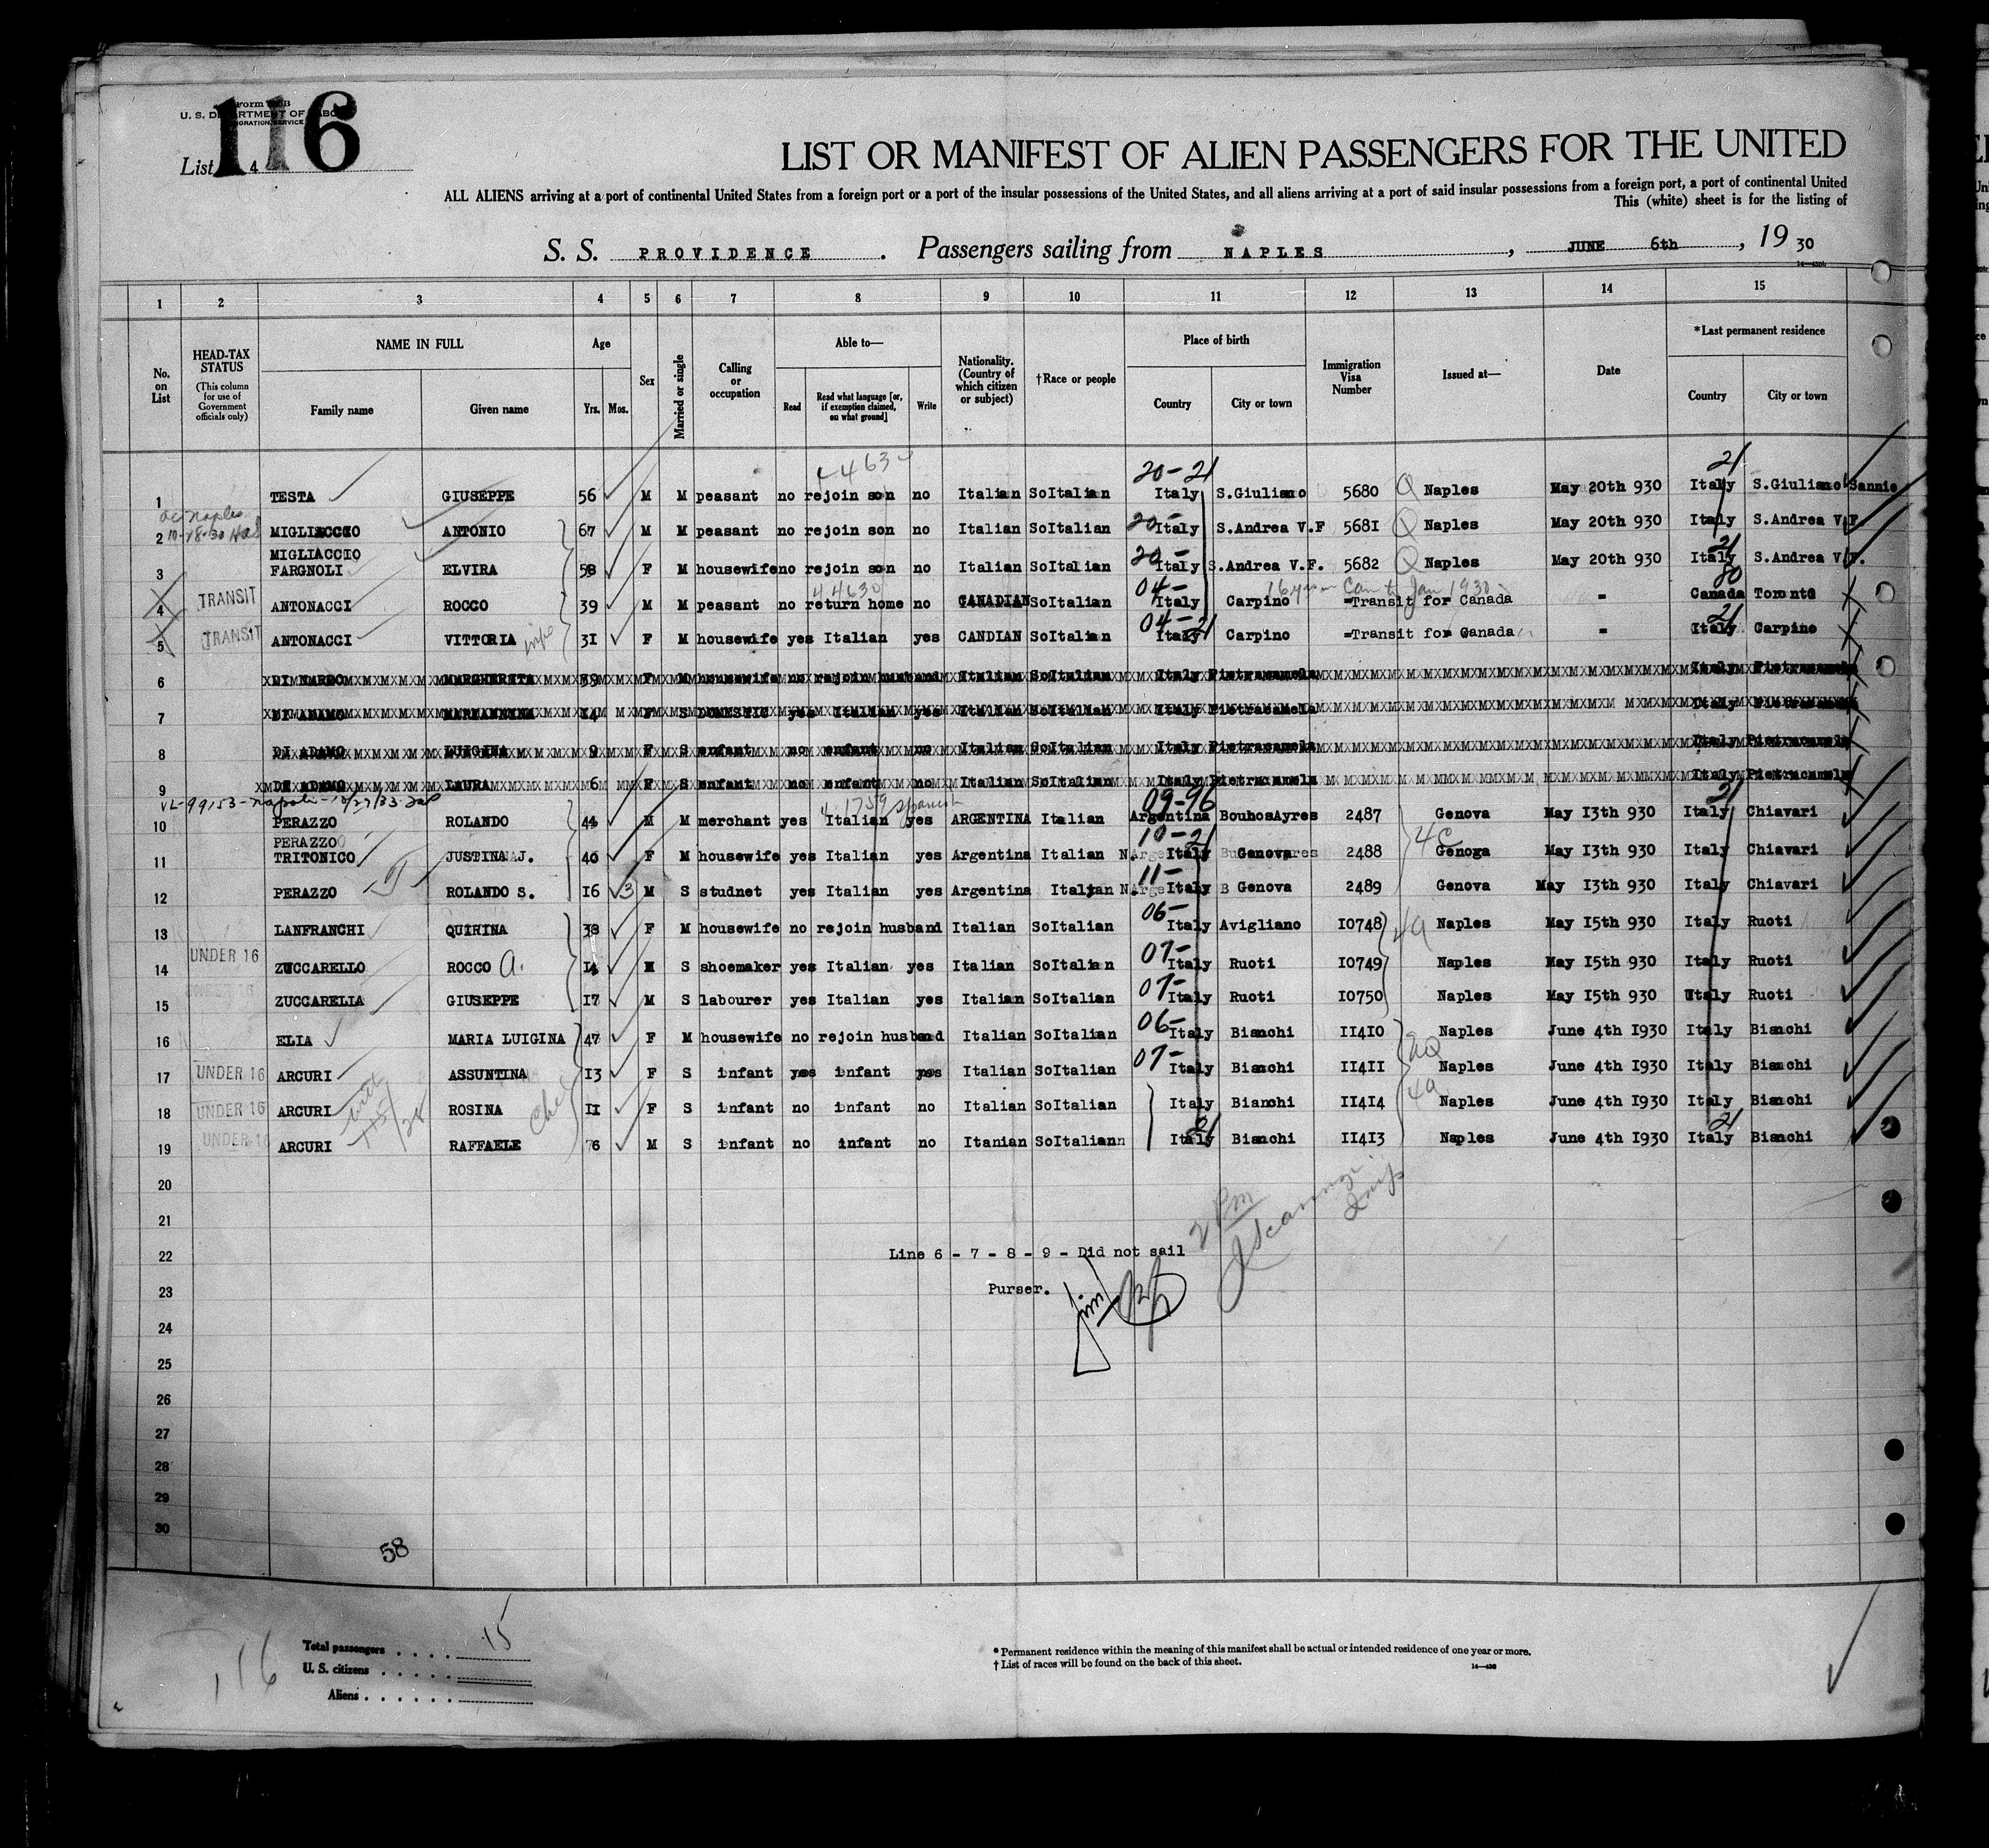 116
Form
U. S. DEPARTMENT OF LABOR
IMMIGRATION SERVICE
List 4
LIST OR MANIFEST OF ALIEN PASSENGERS FOR THE UNITED
ALL ALIENS arriving at a port of continental United States from a foreign port or a port of the insular possessions of the United States, and all aliens arriving at a port of said insular possessions from a foreign port, a port of continental United
This (white) sheet is for the listing of
S. S. PROVIDENCE . Passengers sailing from NAPLES , JUNE 6th , 19 30
1 2 3 4 5 6 7 8 9 10 11 12 13 14 15
No. on List
HEAD-TAX STATUS (This column for use of Government officials only)
NAME IN FULL
Family name Given name
Age
Yrs. Mos.
Sex
Married or single
Calling or occupation
Able to—
Read Read what language [or, if exemption claimed, on what ground] Write
Nationality. (Country of which citizen or subject)
†Race or people
Place of birth
Country City or town
Immigration Visa Number
Issued at—
Date
*Last permanent residence
Country City or town
20-21 21
1 TESTA GIUSEPPE 56 M M peasant no rejoin son no Italian SoItalian Italy S.Giuliano 5680 Q Naples May 20th 930 Italy S.Giuliano Sannio
2 MIGLIACCIO ANTONIO 67 M M peasant no rejoin son no Italian SoItalian 20- Italy S.Andrea V.F 5681 Q Naples May 20th 930 Italy S.Andrea V.F.
MIGLIACCIO
3 FARGNOLI ELVIRA 58 F M housewife no rejoin son no Italian SoItalian 20- Italy S.Andrea V.F. 5682 Q Naples May 20th 930 Italy S.Andrea V.F.
4 TRANSIT ANTONACCI ROCCO 39 M M peasant no return home no CANADIAN SoItalian 04- Italy Carpino =Transit for Canada - Canada Toronto
5 TRANSIT ANTONACCI VITTORIA wife 31 F M housewife yes Italian yes CANDIAN SoItalian 04-21 Italy Carpino =Transit for Canada - Italy Carpino
6 DI NARDO MARGHERITA 39 F M housewife no rejoin husband Italian SoItalian Italy Pietracamela Italy Pietracamela
7 DI ADAMO MARIANNINA 14 F S DOMESTIC yes Italian yes Italian SoItalian Italy Pietracamela Italy Pietracamela
8 DI ADAMO LUIGINA 9 F S enfant no enfant no Italian SoItalian Italy Pietracamela Italy Pietracamela
9 DI ADAMO LAURA 6 F S enfant no enfant no Italian SoItalian Italy Pietracamela Italy Pietracamela
09-96 21
10 PERAZZO ROLANDO 44 M M merchant yes Italian yes ARGENTINA Italian Argentina BouhosAyres 2487 Genova May 13th 930 Italy Chiavari
PERAZZO
11 TRITONICO JUSTINA J. 40 F M housewife yes Italian yes Argentina Italian 10-21 Italy Genova 2488 4c Genova May 13th 930 Italy Chiavari
12 PERAZZO ROLANDO S. 16 3 M S studnet yes Italian yes Argentina Italian 11- Italy Genova 2489 Genova May 13th 930 Italy Chiavari
13 LANFRANCHI QUIRINA 38 F M housewife no rejoin husband Italian SoItalian 06- Italy Avigliano 10748 4a Naples May 15th 930 Italy Ruoti
14 UNDER 16 ZUCCARELLO ROCCO a. 14 M S shoemaker yes Italian yes Italian SoItalian 07- Italy Ruoti 10749 Naples May 15th 930 Italy Ruoti
15 UNDER 16 ZUCCARELIA GIUSEPPE 17 M S labourer yes Italian yes Italian SoItalian 07- Italy Ruoti 10750 Naples May 15th 930 Italy Ruoti
16 ELIA MARIA LUIGINA 47 F M housewife no rejoin husband Italian SoItalian 06- Italy Bianchi 11410 Naples June 4th 1930 Italy Bianchi
17 UNDER 16 ARCURI ASSUNTINA 13 F S infant yes infant yes Italian SoItalian 07- Italy Bianchi 11411 Naples June 4th 1930 Italy Bianchi
18 UNDER 16 ARCURI ROSINA 11 F S infant no infant no Italian SoItalian Italy Bianchi 11414 4a Naples June 4th 1930 Italy Bianchi
19 UNDER 16 ARCURI RAFFAELE 6 M S infant no infant no Itanian SoItaliann 21 Italy Bianchi 11413 Naples June 4th 1930 21 Italy Bianchi
20
21
2 Pm
22 Line 6 - 7 - 8 - 9 - Did not sail
23 Purser.
24
25
26
27
28
29
30
58
Total passengers . . . . 15
U. S. citizens . . . . .
Aliens . . . . . .
116
* Permanent residence within the meaning of this manifest shall be actual or intended residence of one year or more.
† List of races will be found on the back of this sheet.